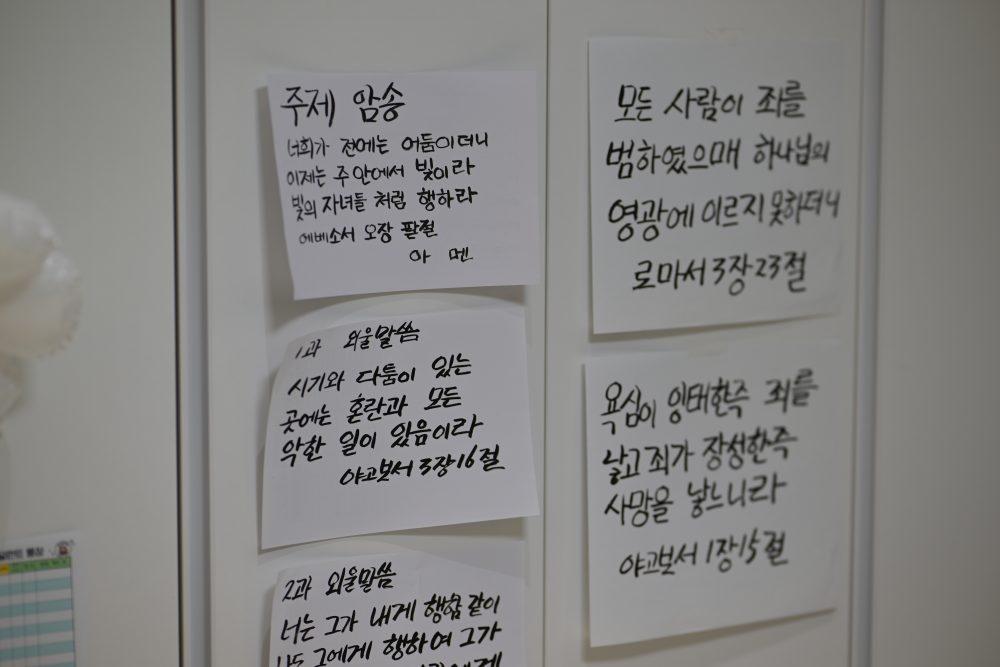 주제 암송
너희가 전에는 어둠이더니
이제는 주 안에서 빛이라
빛의 자녀들 처럼 행하라
에베소서 오장 팔절
아 멘
1과 외울말씀
시기와 다툼이 있는
곳에는 혼란과 모든
악한 일이 있음이라
야고보서 3장 16절
2과 외울말씀
너는 그가 내게 행함 같이
나도 그에게 행하여 그가
모든 사람이 죄를
범하였으매 하나님의
영광에 이르지 못하더니
로마서 3장 23절
욕심이 잉태한즉 죄를
낳고 죄가 장성한즉
사망을 낳느니라
야고보서 1장 15절